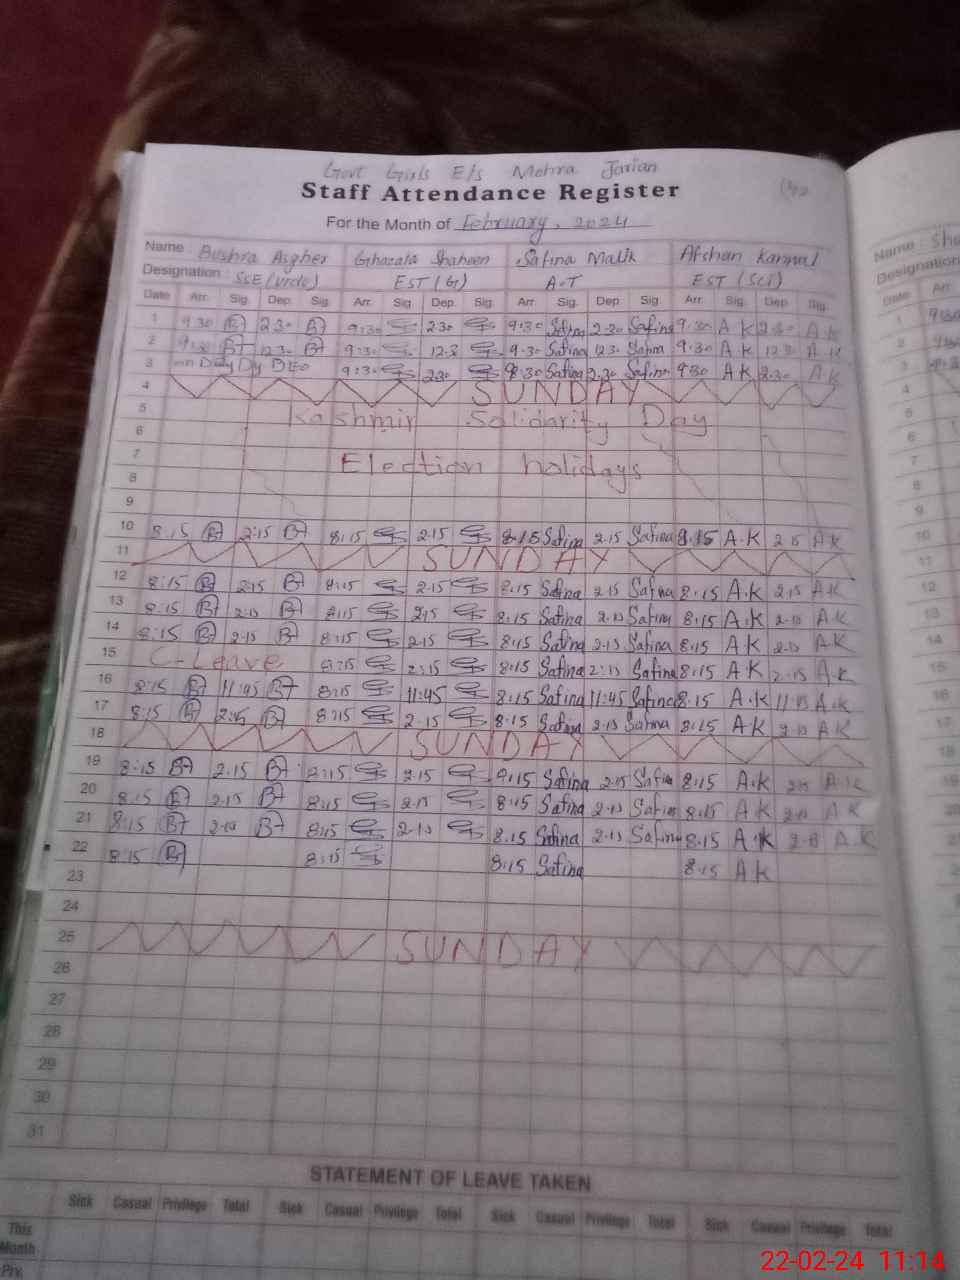 Govt Girls E/s Mohra Jarian
Staff Attendance Register
For the Month of February, 2024
Name : Bushra Asgher Ghazala Shaheen Safina Malik Afshan Kanwal
Designation : SSE (Urdu) EST (G) A.T EST (Sci)
Date Arr. Sig. Dep. Sig. Arr. Sig. Dep. Sig. Arr. Sig. Dep Sig. Arr. Sig. Dep Sig.
1 9:30 2:30 9:30 2:30 9:30 Safina 2:30 Safina 9:30 A K 2:30 A K
2 9:30 12:30 9:30 12:3 9:30 Safina 12:3 Safina 9:30 A.K 12:3 A K
3 on Duty Dy DEO 9:30 2:30 8:30 Safina 2:30 Safina 9:30 A K 2:30 A K
4 SUNDAY
5 Kashmir Solidarity Day
6
7 Election holidays
8
9
10 8:15 2:15 8:15 2:15 8:15 Safina 2:15 Safina 8:15 A.K 2:15 A.K
11 SUNDAY
12 8:15 2:15 8:15 2:15 8:15 Safina 2:15 Safina 8:15 A.K 2:15 A K
13 8:15 2:15 8:15 2:15 8:15 Safina 2:15 Safina 8:15 A.K 2:15 A K
14 8:15 2:15 8:15 2:15 8:15 Safina 2:15 Safina 8:15 A.K 2:15 A K
15 C-Leave 8:15 2:15 8:15 Safina 2:15 Safina 8:15 A K 2:15 A.K
16 8:15 11:45 8:15 11:45 8:15 Safina 11:45 Safina 8:15 A.K A.K
17 8:15 2:15 8:15 2:15 8:15 Safina 2:15 Safina 8:15 A K 2:15 A K
18 SUNDAY
19 8:15 2:15 8:15 2:15 Safina 2:15 Safina 8:15 A.K 2:15 A.K
20 8:15 2:15 8:15 2:15 8:15 Safina 2:15 Safina 8:15 A K 2:15 A K
21 8:15 2:15 8:15 2:15 8:15 Safina 2:15 Safina 8:15 A K A.K
22 8:15 8:15 8:15 Safina 8:15 A K
23
24
25 SUNDAY
26
27
28
29
30
31
STATEMENT OF LEAVE TAKEN
Sick Casual Privilege Total Sick Casual Privilege Total Sick Casual Privilege Total Sick Casual Privilege Total
This
Month
Prv.
Name : Sha
Designation
Date Arr
22-02-24 11:14